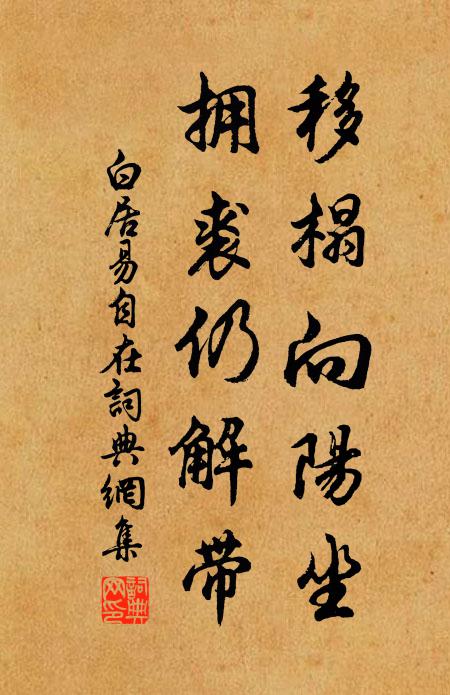 移榻向陽坐
拥裘仍解带
白居易自在詞典網集
詞典網印